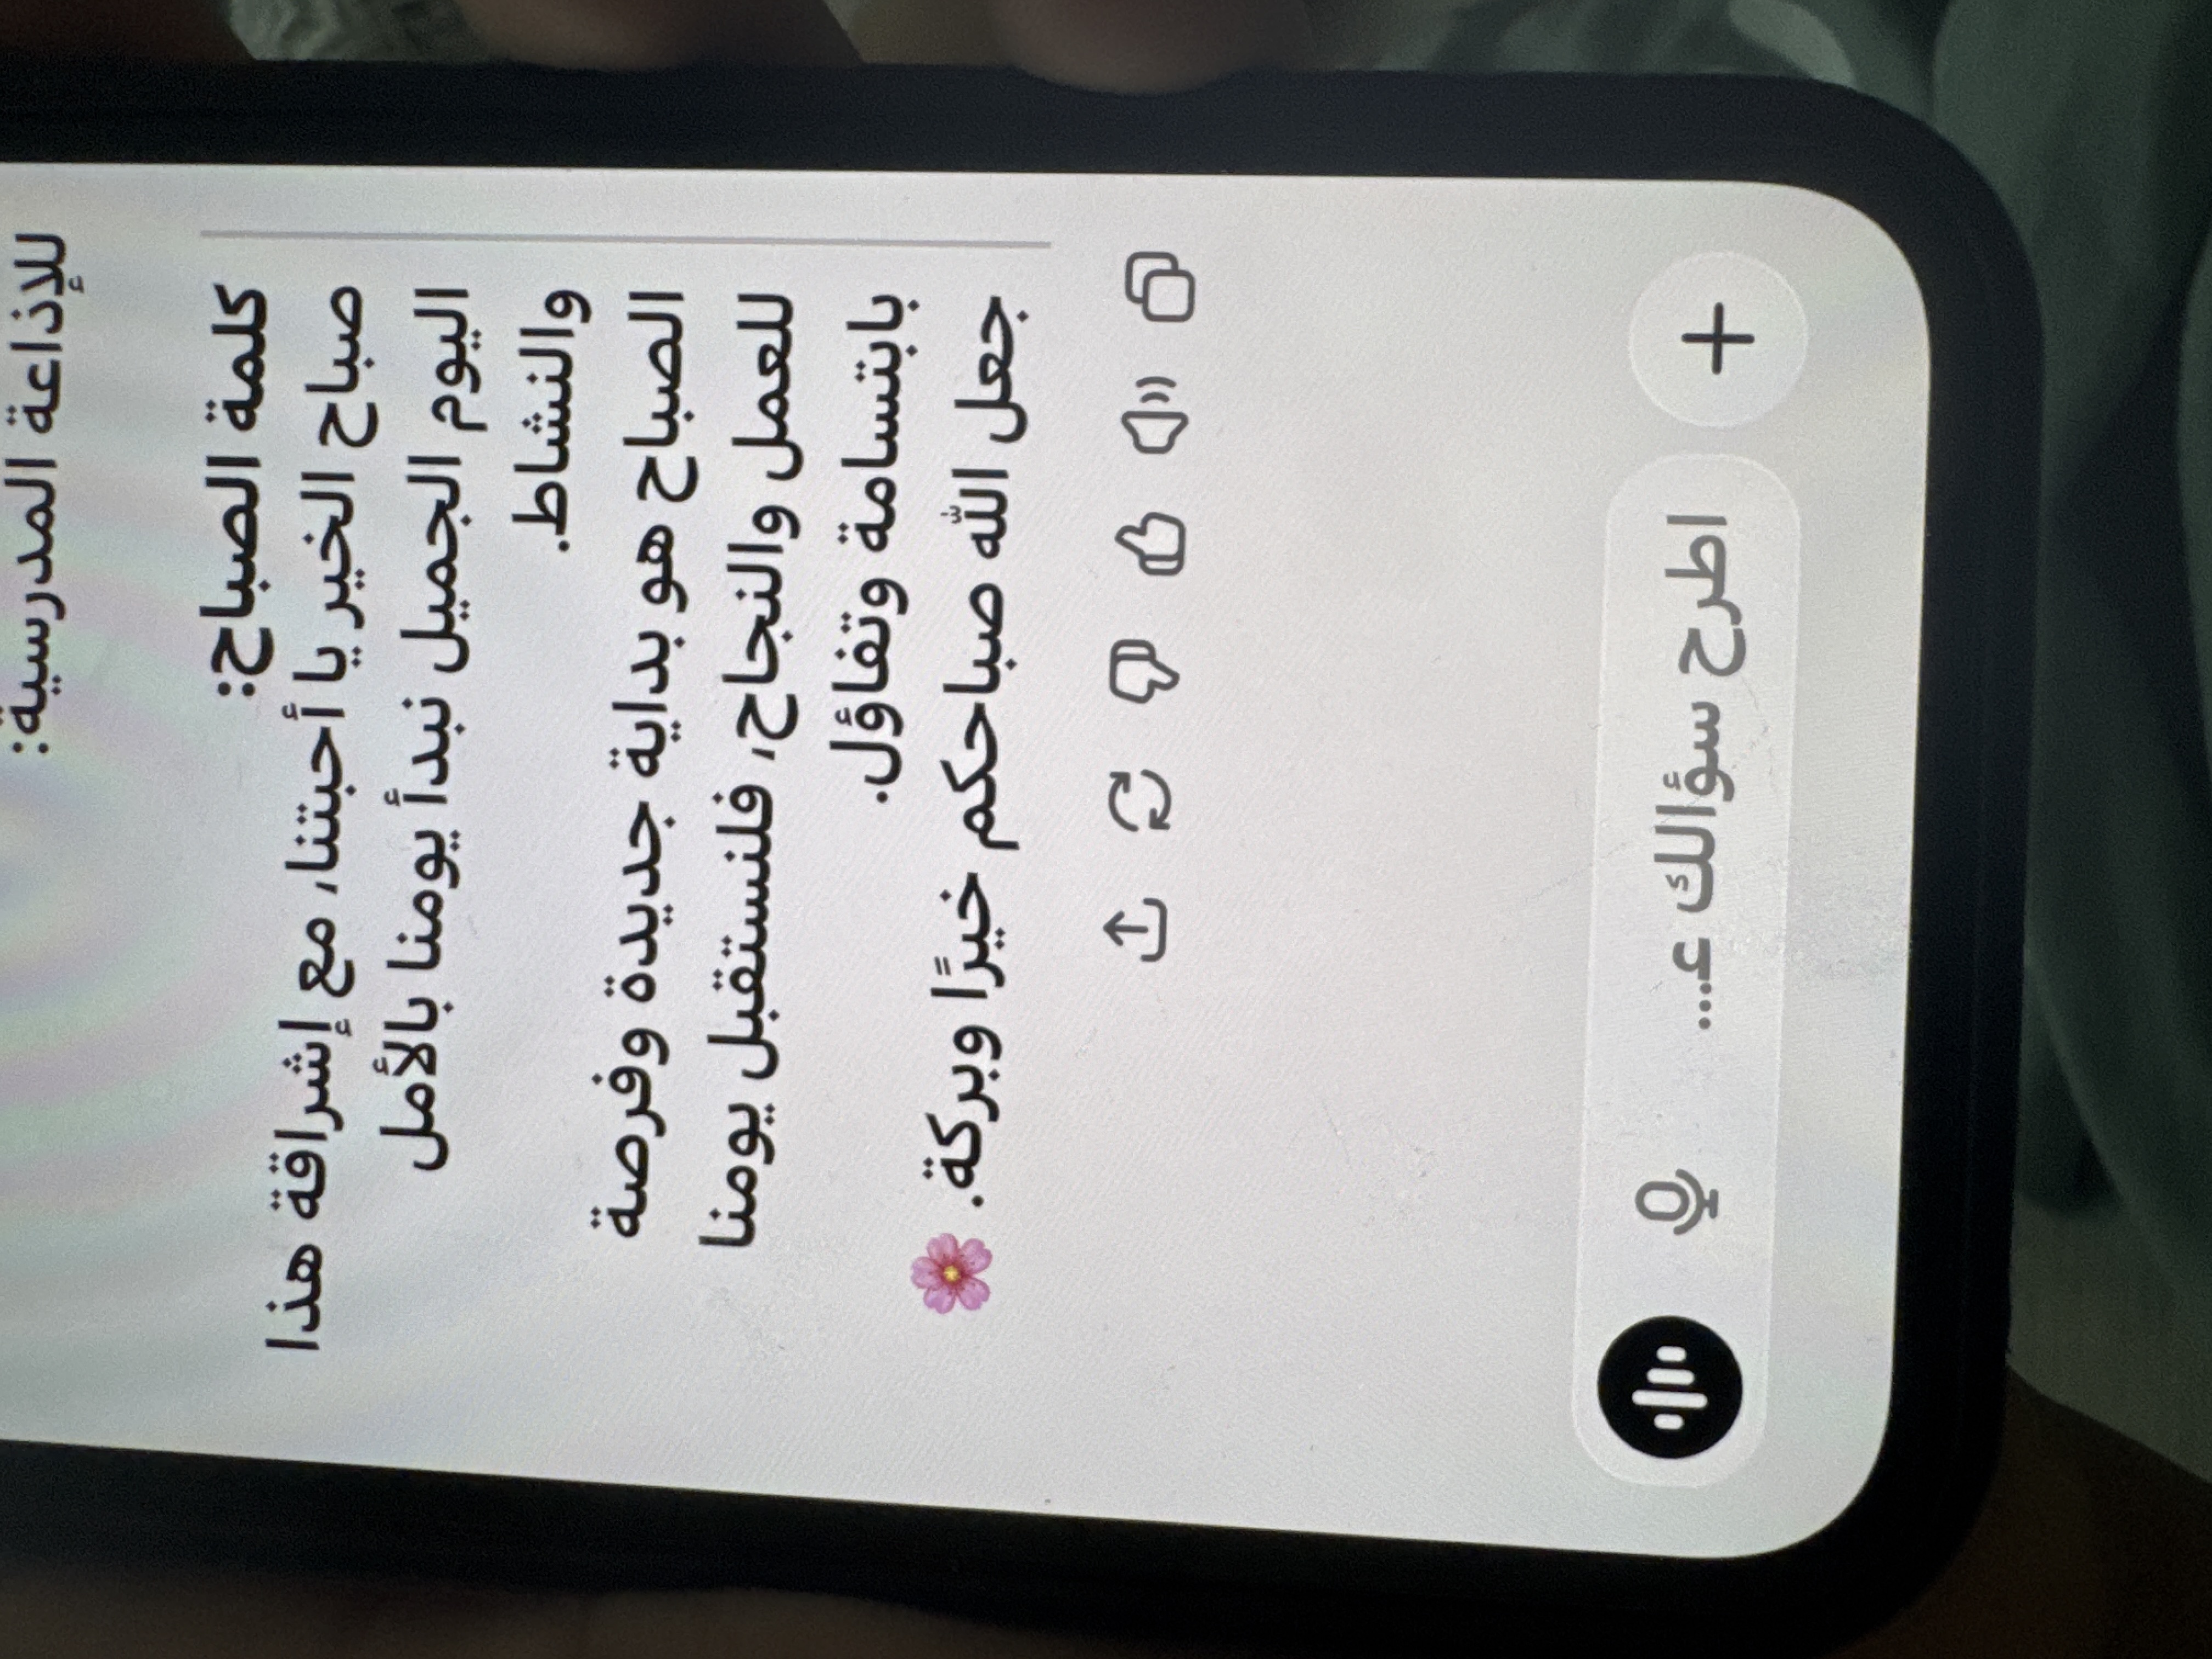 للإذاعة المدرسية:
كلمة الصباح:
صباح الخير يا أحبتنا، مع إشراقة هذا
اليوم الجميل نبدأ يومنا بالأمل
والنشاط.
الصباح هو بداية جديدة وفرصة
للعمل والنجاح، فلنستقبل يومنا
بابتسامة وتفاؤل.
جعل الله صباحكم خيرًا وبركة. 🌸
اطرح سؤالك ع...